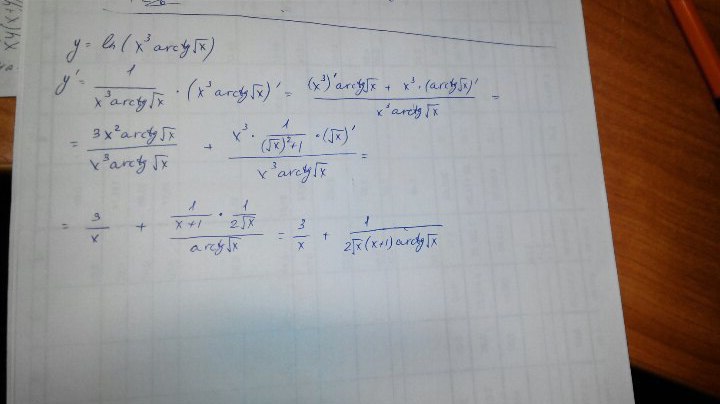 y = ln(x³ arctg√x)
y' = 1/(x³ arctg√x) · (x³ arctg√x)' = ((x³)' arctg√x + x³ · (arctg√x)')/(x³ arctg√x) =
= (3x² arctg√x)/(x³ arctg√x) + (x³ · 1/((√x)²+1) · (√x)')/(x³ arctg√x) =
= 3/x + (1/(x+1) · 1/(2√x))/(arctg√x) = 3/x + 1/(2√x(x+1) arctg√x)